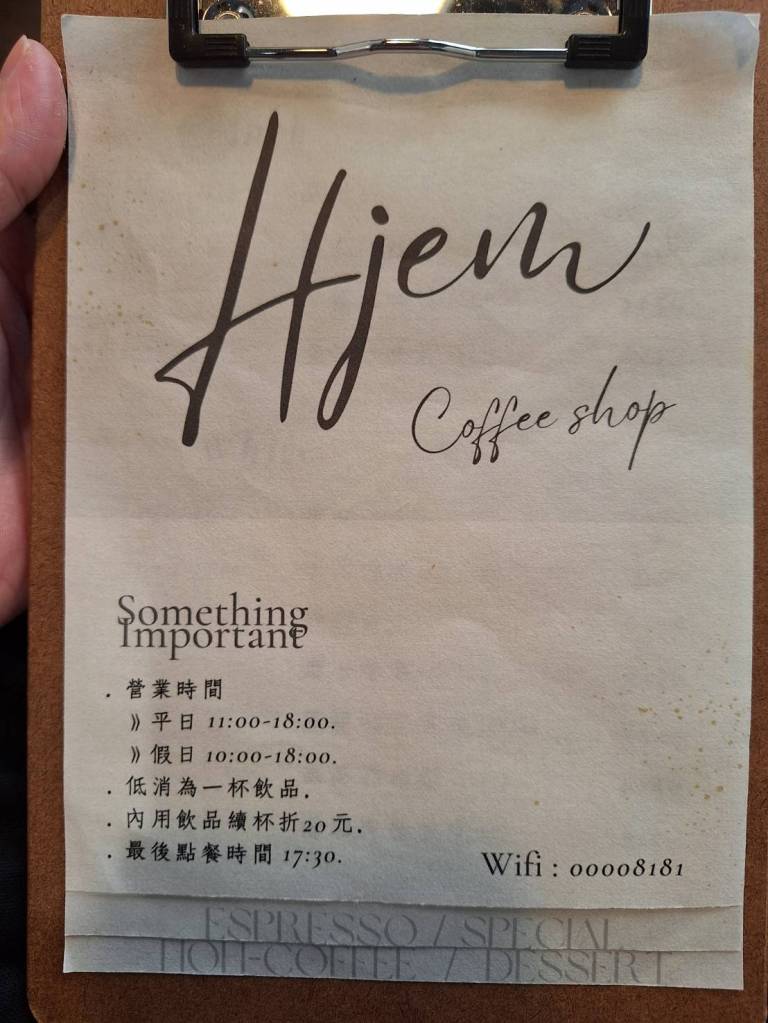 Hjem
Coffee shop
Something
Important
. 營業時間
》平日 11:00-18:00.
》假日 10:00-18:00.
. 低消為一杯飲品.
. 內用飲品續杯折20元.
. 最後點餐時間 17:30.
Wifi : 00008181
ESPRESSO / SPECIAL
NON-COFFEE / DESSERT